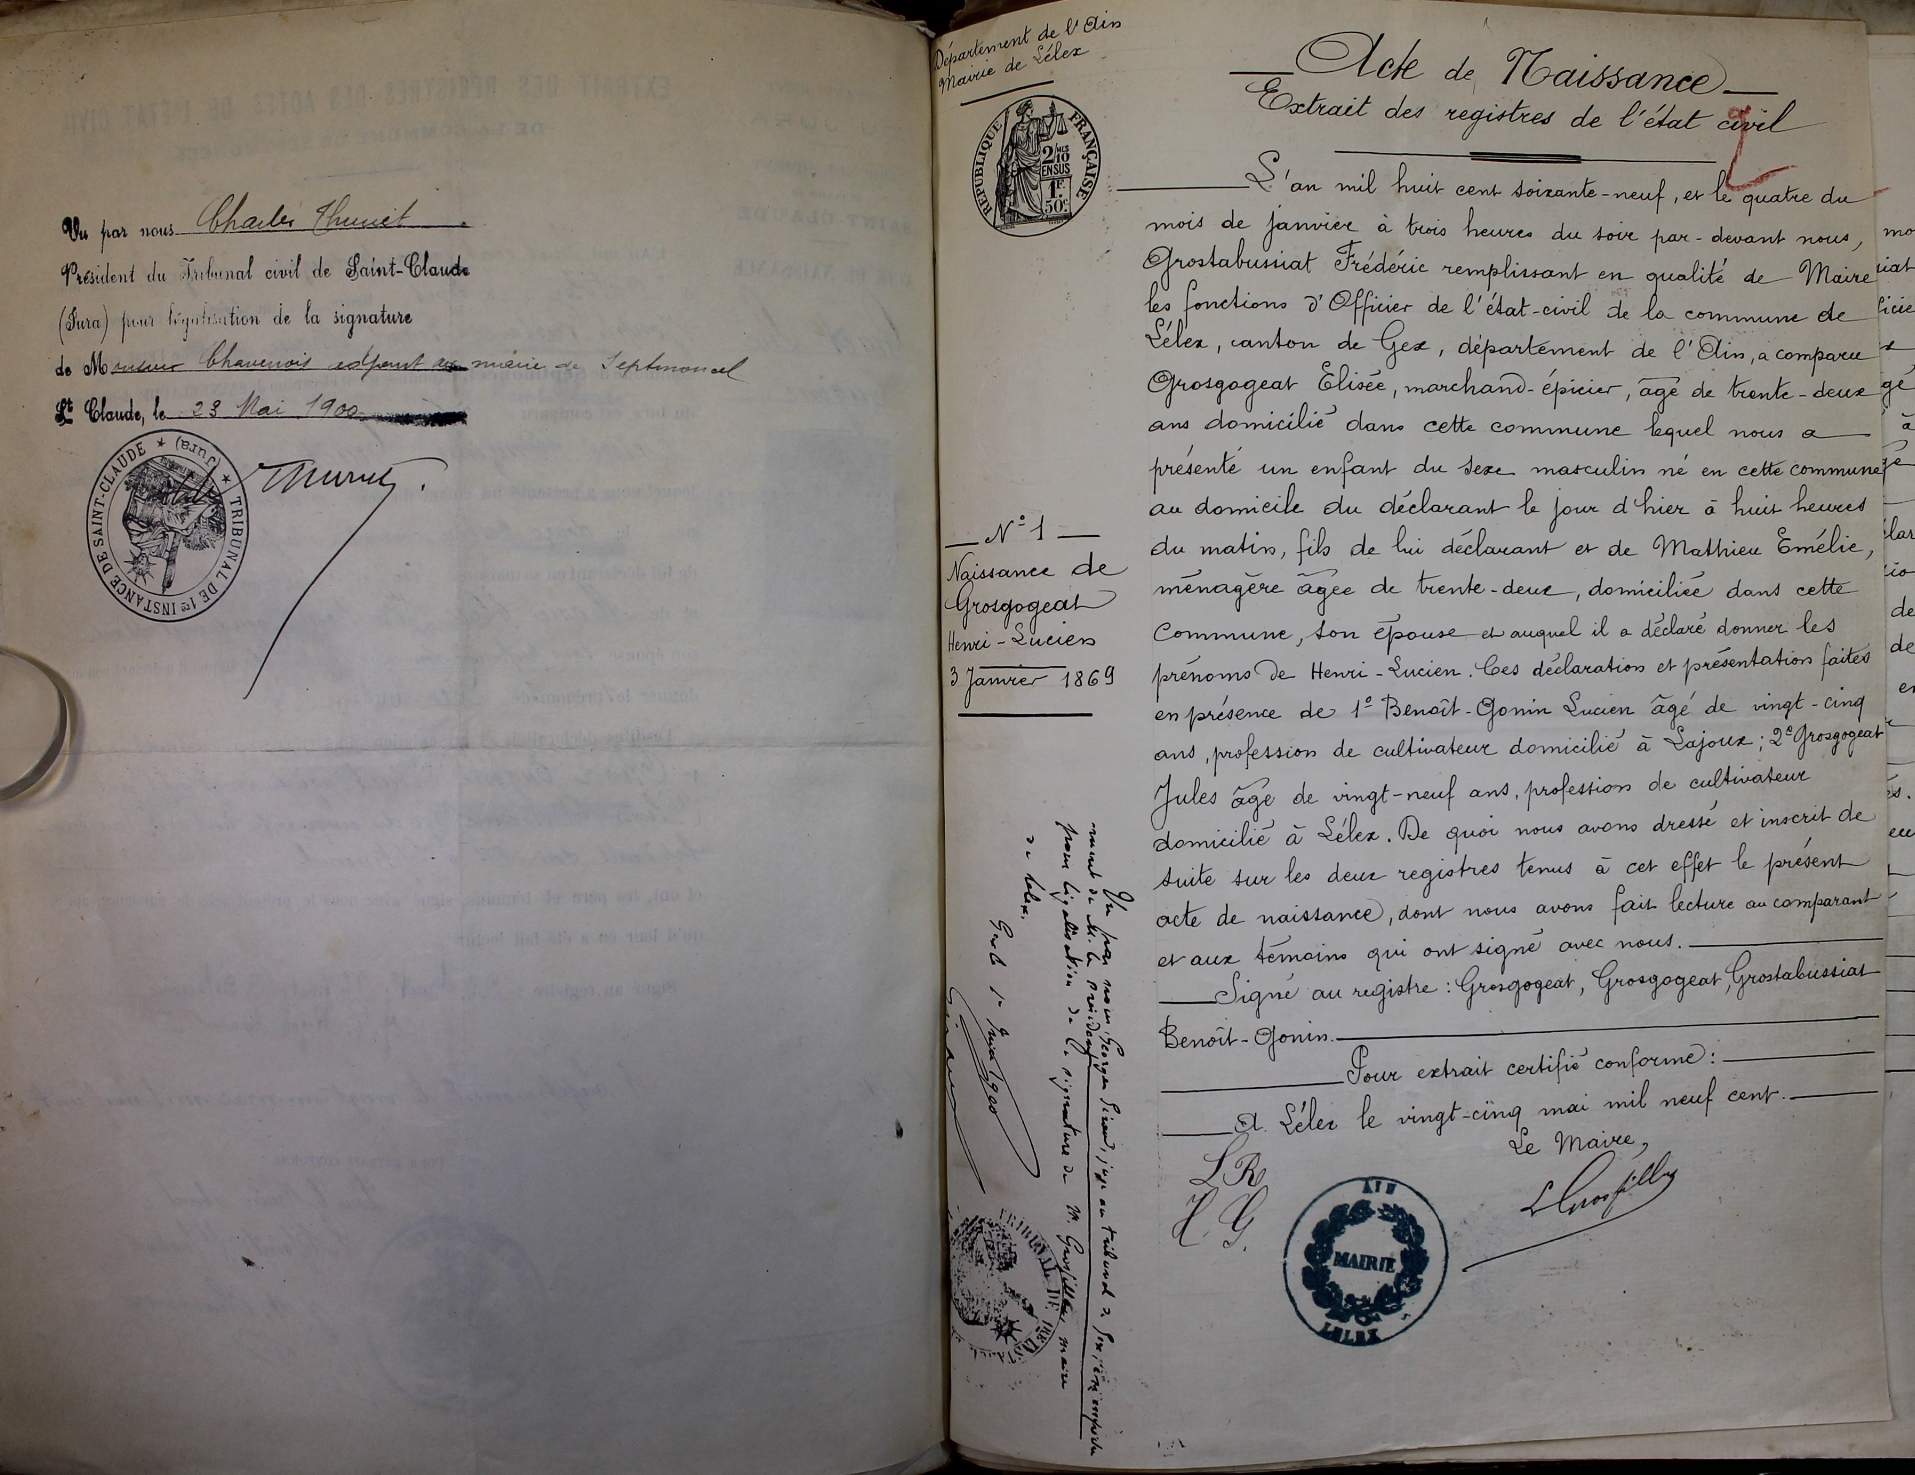 Vu par nous Charles Thuriet
Président du Tribunal civil de Saint-Claude
(Jura) pour légalisation de la signature
de Monsieur Chavenois adjoint au maire de Septmoncel
St Claude, le 23 Mai 1900
TRIBUNAL DE 1re INSTANCE DE SAINT-CLAUDE (Jura)
Département de l'Ain
Mairie de Lélex
REPUBLIQUE FRANÇAISE
2/10 EN SUS
1F 50c
N° 1
Naissance de
Grosgogeat
Henri-Lucien
3 Janvier 1869
Vu par nous Georges Girod, juge au tribunal de Gex,
ment de M. le président
pour légalisation de la signature de M. Grosfilley maire
de Lélex.
Gex le 1er Juin 1900
TRIBUNAL DE 1RE
Acte de Naissance
Extrait des registres de l'état civil
L'an mil huit cent soixante-neuf, et le quatre du
mois de janvier à trois heures du soir par-devant nous,
Grostabussiat Frédéric remplissant en qualité de Maire
les fonctions d'Officier de l'état-civil de la commune de
Lélex, canton de Gex, département de l'Ain, a comparu
Grosgogeat Elisée, marchand-épicier, âgé de trente-deux
ans domicilié dans cette commune lequel nous a
présenté un enfant du sexe masculin né en cette commune
au domicile du déclarant le jour d'hier à huit heures
du matin, fils de lui déclarant et de Mathieu Emélie,
ménagère âgée de trente-deux, domiciliée dans cette
commune, son épouse et auquel il a déclaré donner les
prénoms de Henri-Lucien. Ces déclaration et présentation faites
en présence de 1° Benoît-Gonin Lucien âgé de vingt-cinq
ans, profession de cultivateur domicilié à Lajoux; 2° Grosgogeat
Jules âgé de vingt-neuf ans, profession de cultivateur
domicilié à Lélex. De quoi nous avons dressé et inscrit de
suite sur les deux registres tenus à cet effet le présent
acte de naissance, dont nous avons fait lecture au comparant
et aux témoins qui ont signé avec nous.
Signé au registre : Grosgogeat, Grosgogeat, Grostabussiat
Benoît-Gonin.
Pour extrait certifié conforme :
A Lélex le vingt-cinq mai mil neuf cent.
Le Maire,
L. R.
H. G.
L Grosfilley
AIN
MAIRIE
LELEX